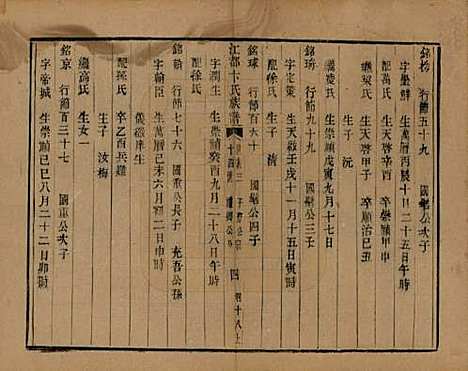 銘扬 行節五十九 國 公次子
字墨鮮 生萬曆丙辰十一月二十五日午時
配萬氏 生天啓辛酉 卒崇禎甲申
繼梁氏 生天啓甲子 卒順治己丑
生子 沅
繼凌氏 生崇禎戊寅九月十七日
銘琦 行節九十九 國 公三子
字定策 生天啟壬戌十一月十五日寅時
配陳氏 生子 清
銘球 行節百六十 國 公四子
江都卞氏族譜 十四 四
字潤生 生崇禎癸酉九月二十八日午時
配徐氏
銘鼐 行節七十六 國重公長子 充吾公孫
字翰臣 生萬曆己未六月初二日申時
儀 庠生
配孫氏 卒乙酉兵難
生子 汝梅
繼高氏 生女一
銘京 行節百三十七 國重公次子
字帝城 生崇禎己巳八月二十二日卯時